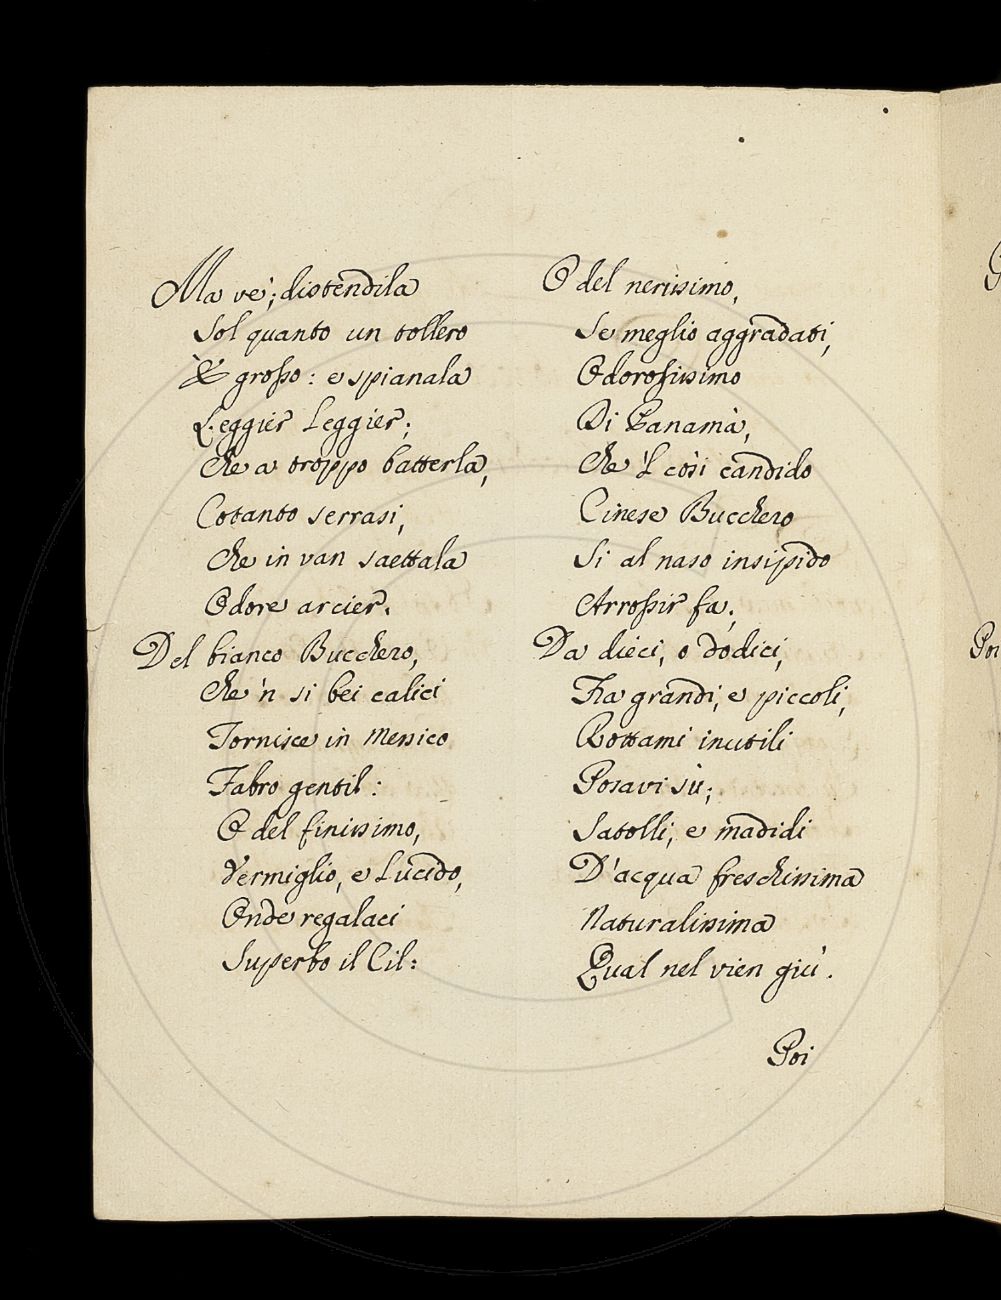 Ma ve'; distendila
Sol quanto un tollero
È grosso: e spianala
Leggier Leggier;
Che a troppo batterla,
Cotanto serrasi,
Che in van saettala
Odore arcier.
Del bianco Bucchero,
Che 'n si bei calici
Fornisce in Messico
Fabro gentil:
O del finissimo,
Vermiglio, e Lucido,
Onde regalaci
Superbo il Cil:
O del nerissimo,
Se meglio aggradati,
Odorosissimo
Di Panamà,
Che 'l così candido
Cinese Bucchero
Si al naso insipido
Arrossir fa;
Da dieci, o dodici,
Fra grandi, e piccoli,
Rottami inutili
Posavi sù;
Satolli, e madidi
D'acqua freschissima
Naturalissima
Qual nel vien giù.
Poi
Poi